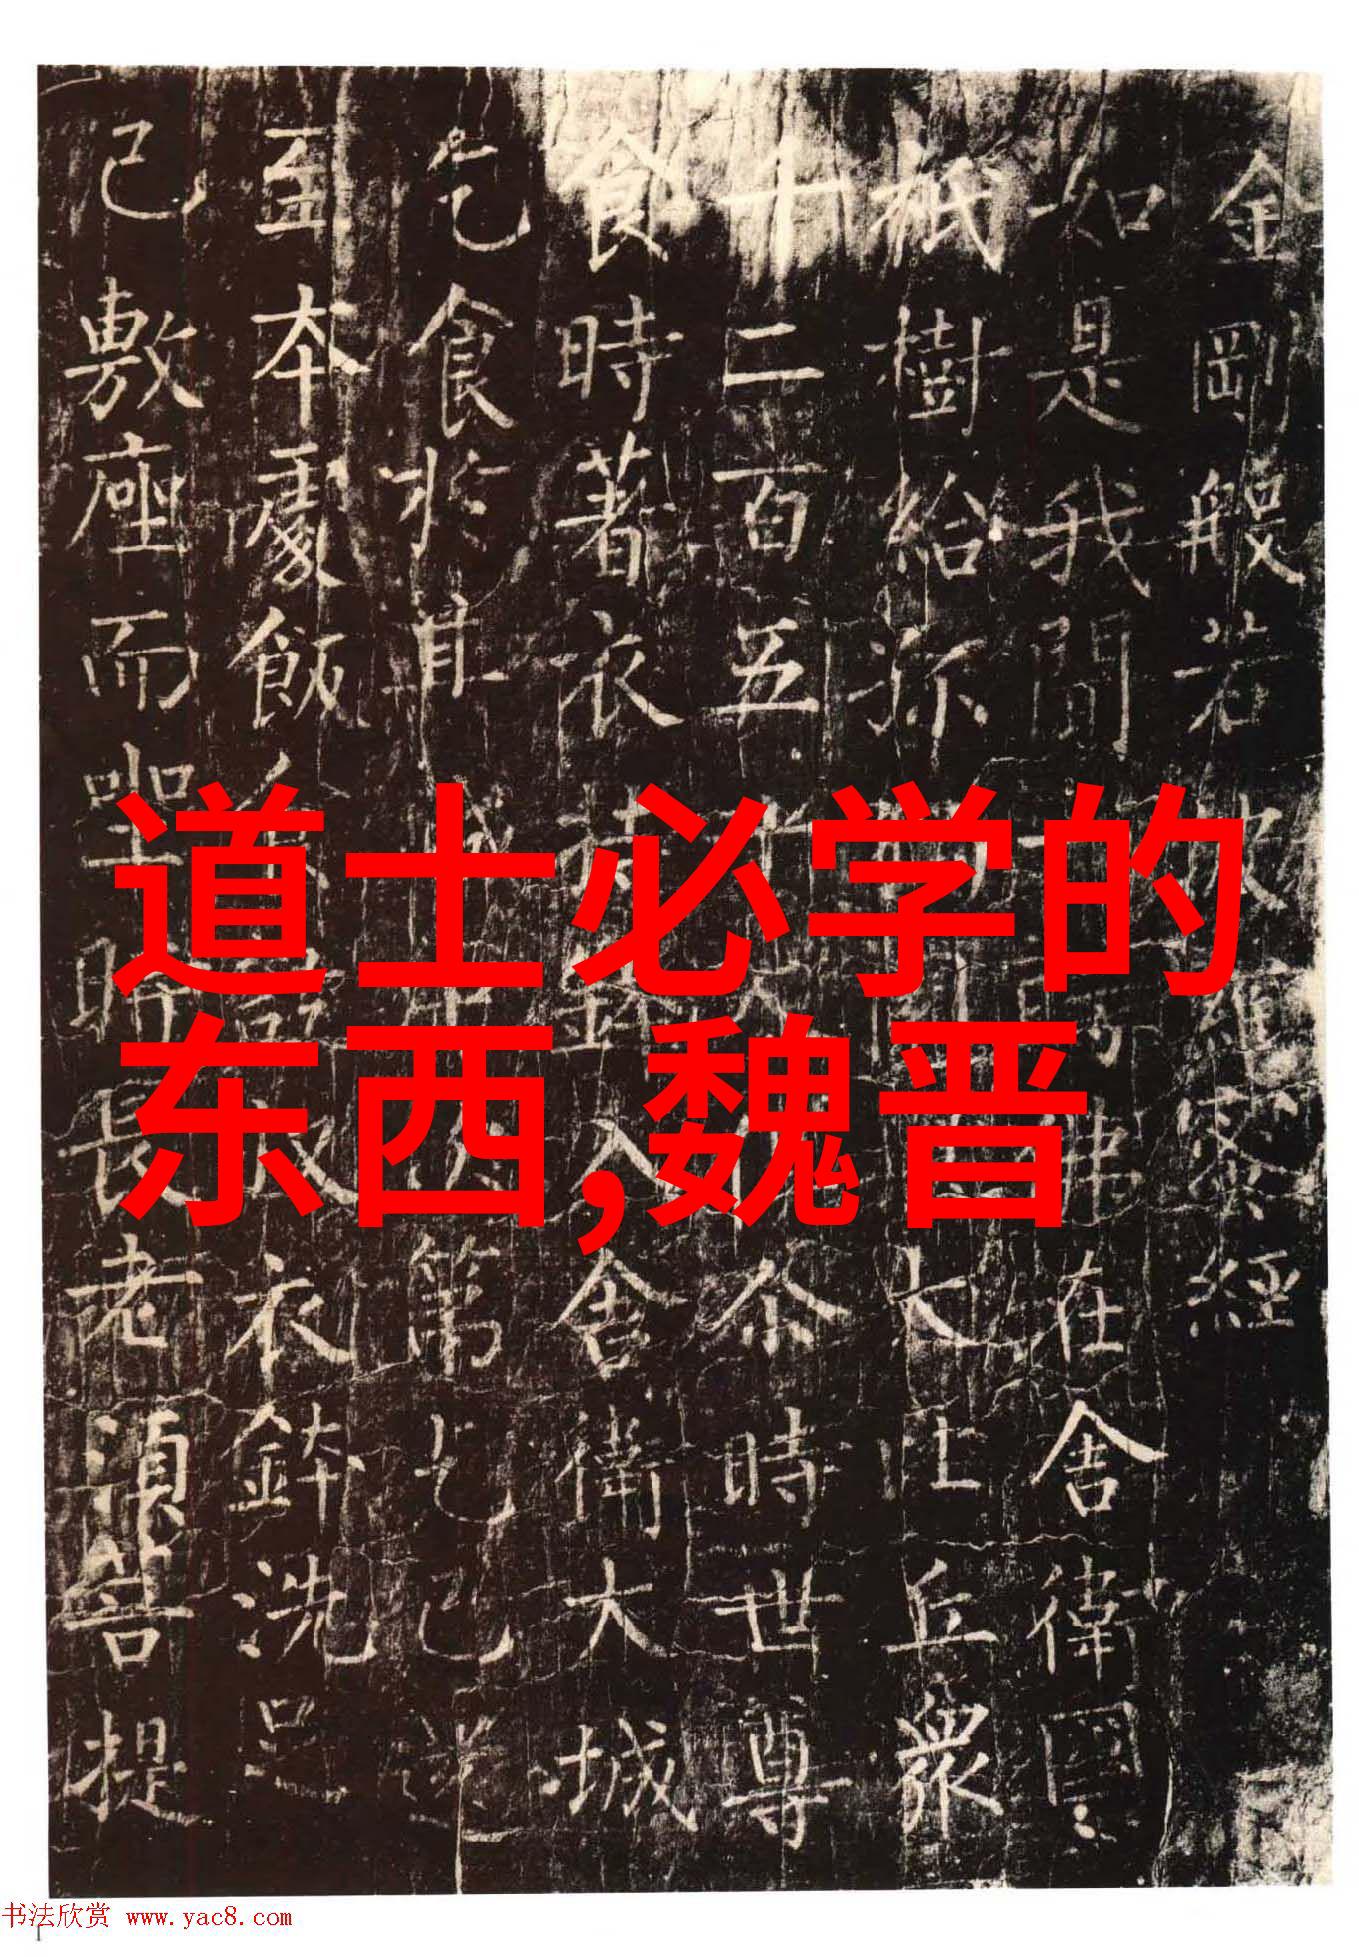 金剛般若羅蜜經
如是我聞佛在舍衛國
祇樹給孤大比丘衆
十二百五十人尒時世尊
食時著衣持鉢入舍衛大城
乞食於其城中次第乞已還
至本處飯食収衣鉢洗足
已敷座而坐時長老須菩提
道士必学的
东西,魏晋
书法欣赏 www.yac8.com